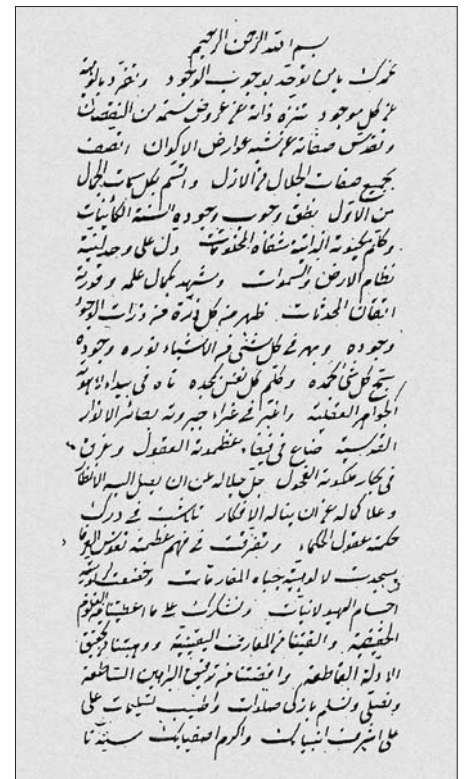 بسم الله الرحمن الرحيم
نحمدك يا من توحد بوجوب الوجود وتفرد بالوهيته
عن كل موجود تنزه ذاته عن عروض سمة من النقصان
وتقدس صفاته عن شبه عوارض الاكوان اتصف
بجميع صفات الجلال في الازل واتسم بكل سمات الجمال
من الاول نطق وجوب وجوده السنة الكائنات
وكلم الذاتية شفاه المخلوقات دل على وحدانيته
نظام الارض والسموات وشهد بكمال علمه وقدرته
اتقان المحدثات ظهر من كل ذرة من ذرات الوجود
وجوده وبهر في كل شئ من الاشياء نوره وجوده
يسبح كل شئ بحمده وكلم كل نفس بمجده تاه في بيداء
الجواهر العقلية واغبر في غبراء جبروته بصائر الانوار
القدسية ضاع في فيفاء عظموته العقول وغرق
في بحار ملكوته الفحول جل جلاله عن ان يصل اليه الانظار
وعلا كماله عن ان يناله الافكار تاهت في درك
حكمته عقول الحكماء وتفرقت في فهم عظمته نفوس
سجدت لالوهيته جباه المفارقات وخضعت
اجسام الهيولانيات ونشكرك على ما اعطيتنا من العلوم
الحقيقية والقيتنا من المعارف اليقينية ووهبتنا بتحقيق
الادلة القاطعة وافضتنا من توفيق البراهين الساطعة
ونصلي ونسلم بازكى صلوات واطيب تسليمات على
على اشرف انبيائك واكرم اصفيائك سيدنا